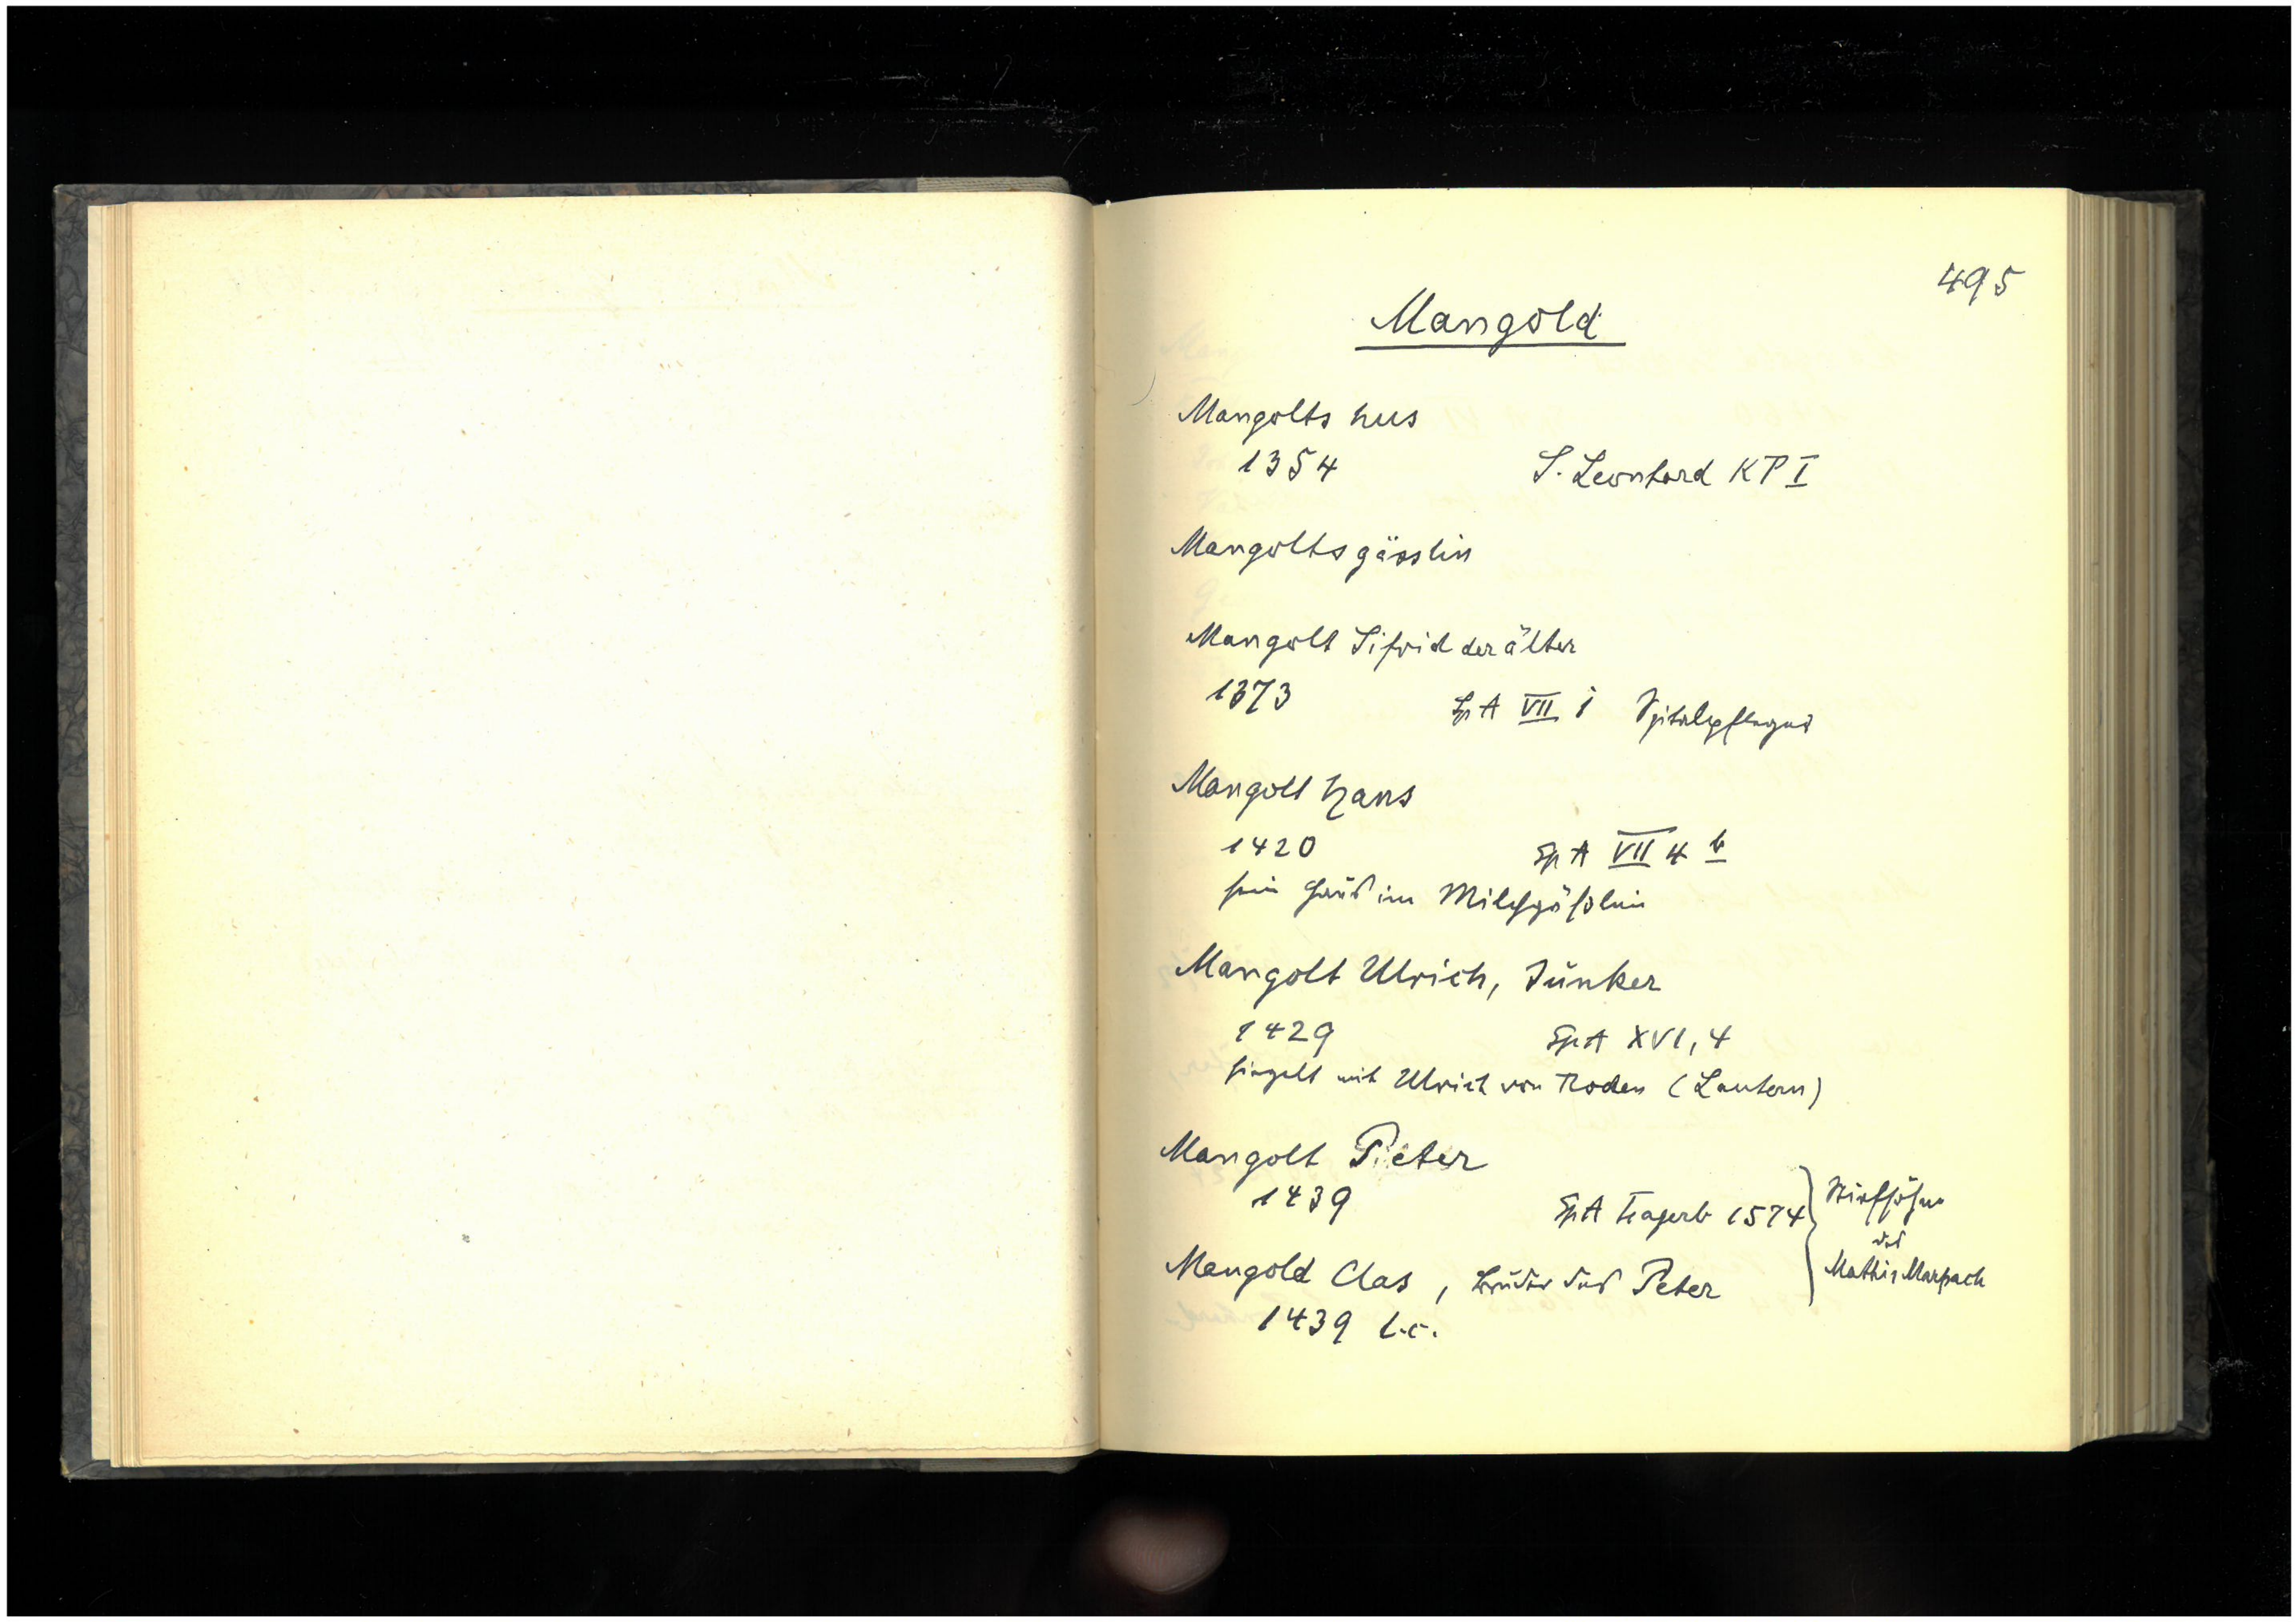 495
Mangold
Mangolts hus
1354 S. Leonhard KP I
Mangoltsgässlin
Mangolt Sifrid der älter
1373 Sp A VII i Spitalpfleger
Mangolt Hans
1420 Sp A VII 4 b
sein Haus im Milchgässlein
Mangolt Ulrich, Junker
1429 Sp A XVI, 4
siegelt mit Ulrich von Roden (Lautern)
Mangolt Peter
1439 Sp A 1574 } Stiefsöhne
des
Mathis Marpach
Mangold Clas, Bruder des Peter
1439 l.c.